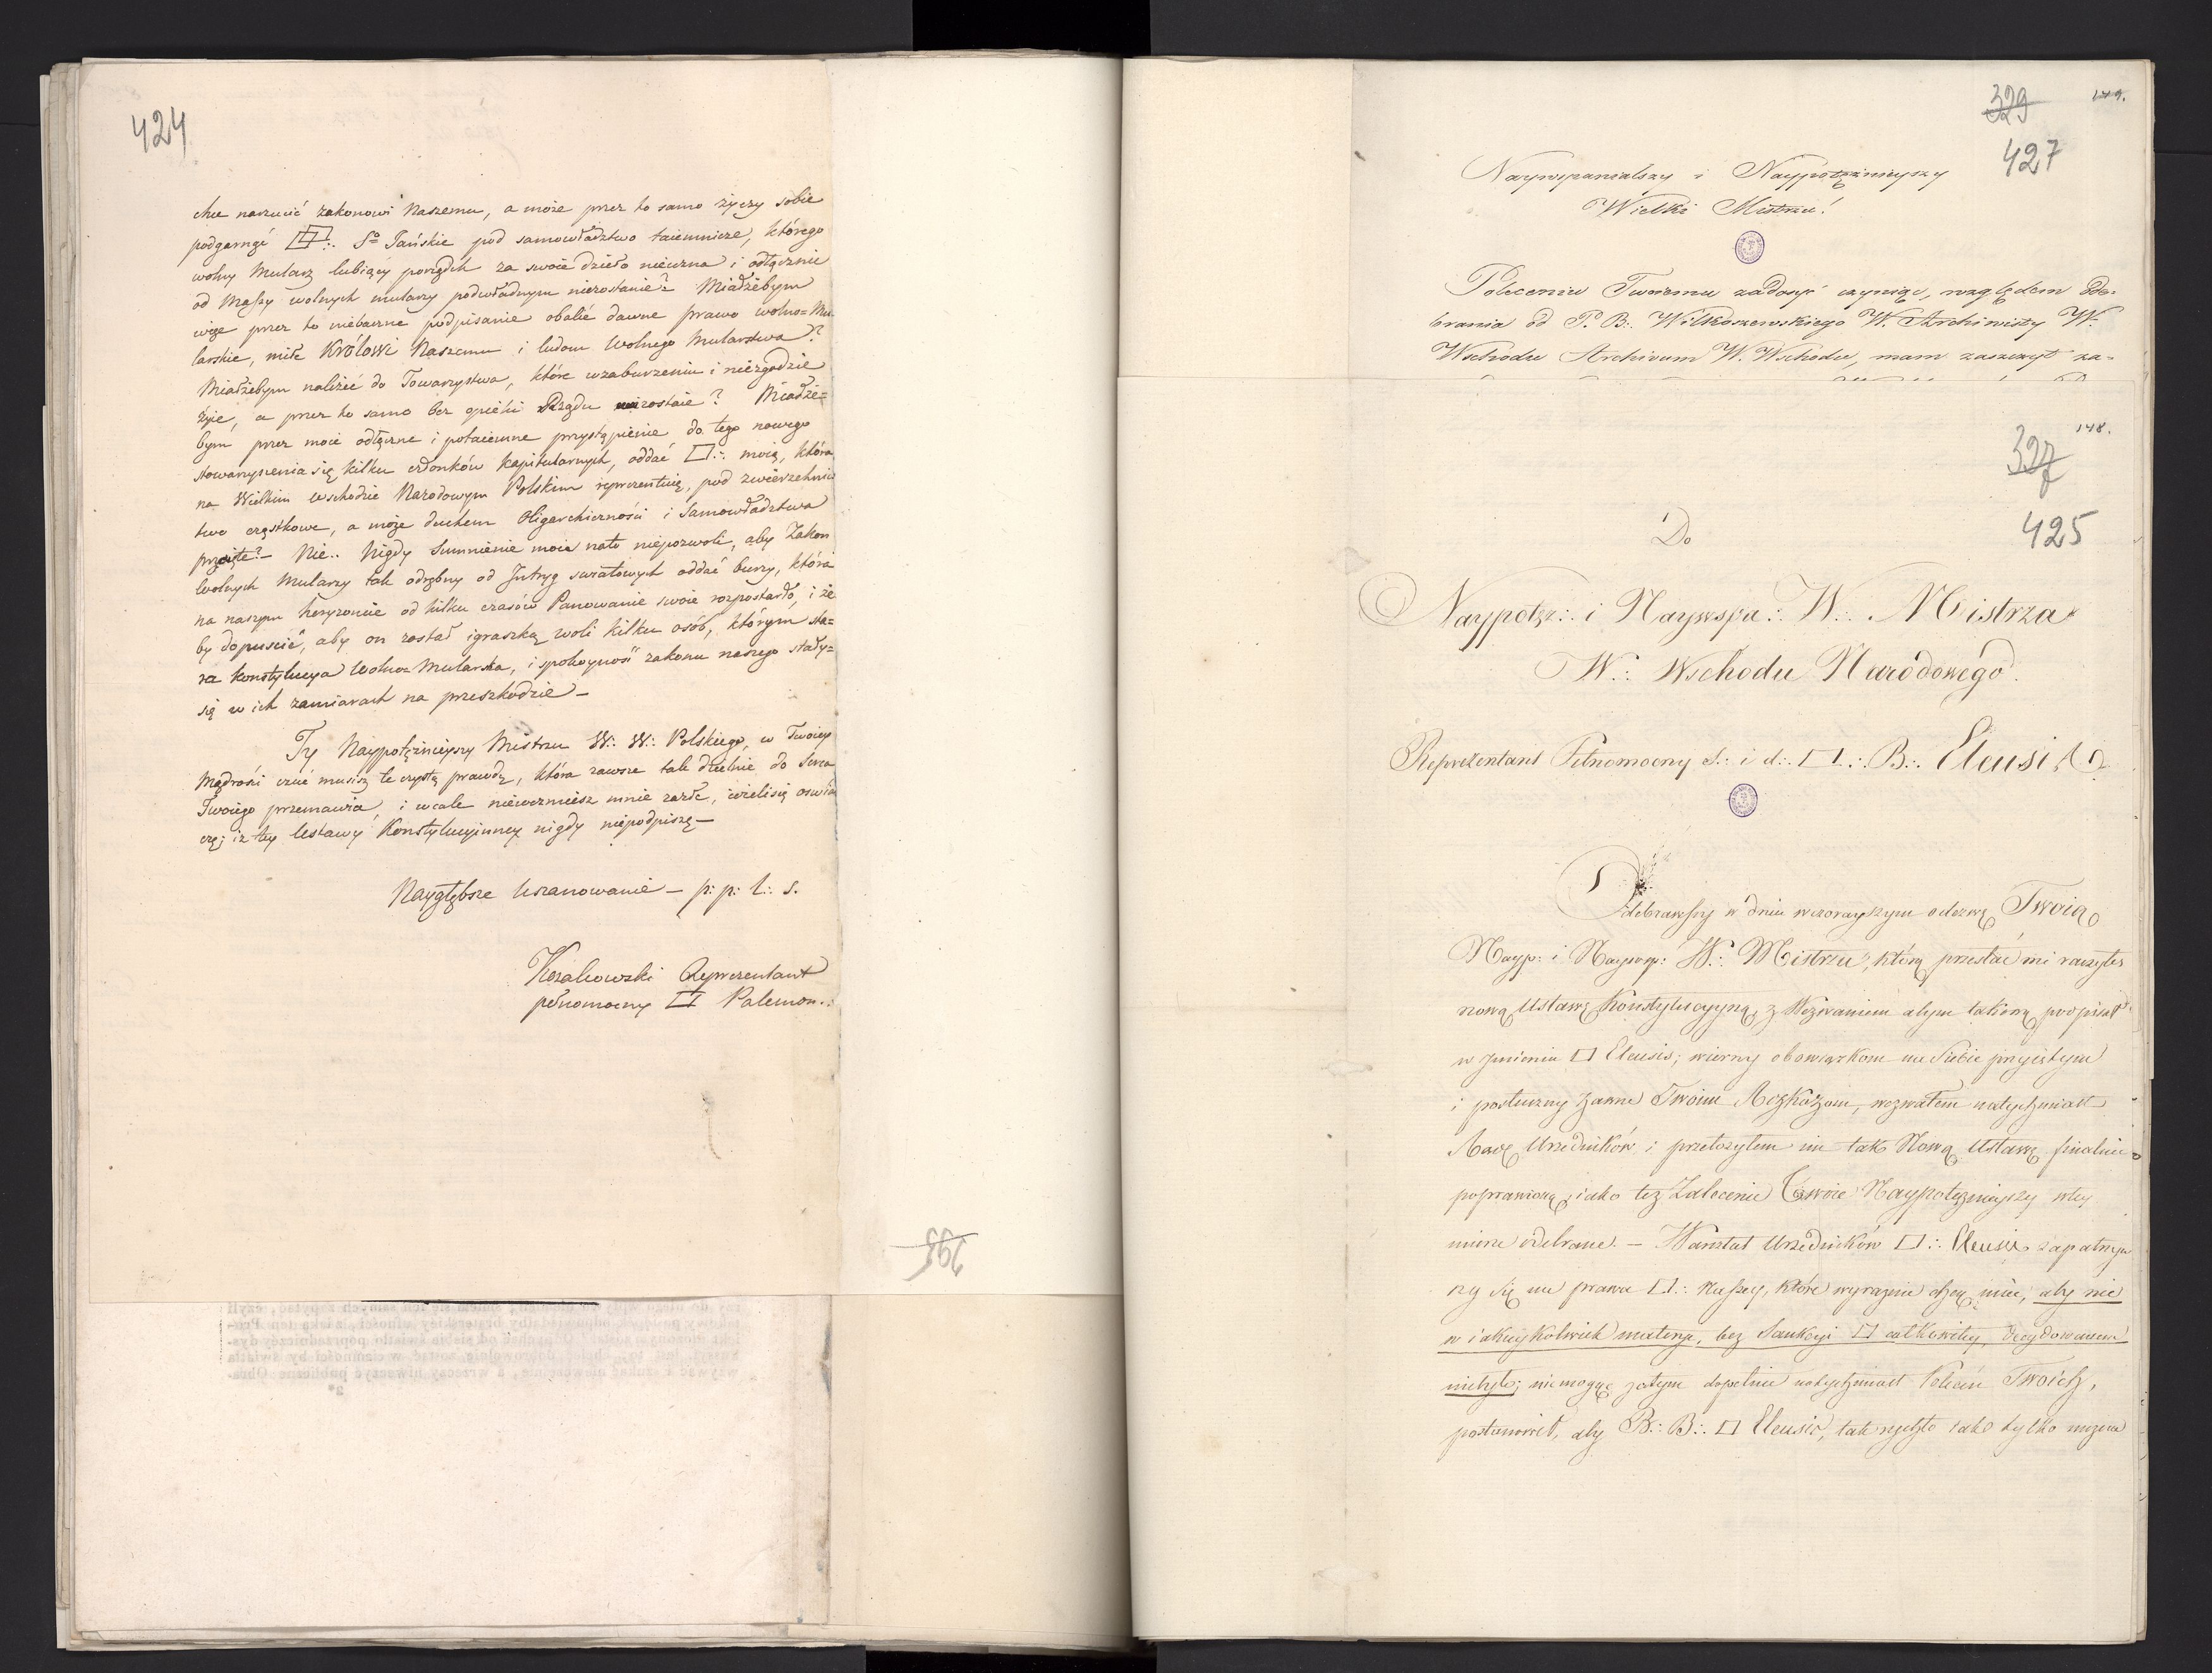 424
chce narzucić zakonowi Naszemu, a może przez to samo życzy sobie
podgarnąć S° Jańskie pod samowładztwo taiemnicze, którego
wolny Mularz lubiący porządek za swoie dzieło nieuzna i odłącznie
od Massy wolnych mularzy podwładnym niezostanie? Miałżebym
więc przez to niebaczne podpisanie obalić dawne prawo wolno=Mu
larskie, miłe Królowi Naszemu i ludom Wolnego Mularstwa?
Miałżebym należeć do Towarzystwa, które wzaburzeniu i niezgodzie
żyie, a przez to samo bez opieki Rządu zostaie? Miałże=
bym przez moie odłączne i potaiemne przystąpienie do tego nowego
stowarzyszenia się kilku członków Kapitularnych, oddać □∴ moią, którą
na Wielkim Wschodzie Narodowym Polskim reprezentuię, pod zwierzchnic
two cząstkowe, a może duchem Oligarchiczności i Samowładztwa
przeięte? – Nie.. Nigdy Sumnienie moie nato niepozwoli, aby Zakon
Wolnych Mularzy tak odrębny od Intryg swiatowych oddać burzy, która
na naszym horyzoncie od kilku czasów Panowanie swoie rozpostarło, i że
by dopuścić, aby on został igraszką woli kilku osób, którym sta=
ra Konstytucya Wolno Mularska, i spokoyność zakonu naszego stały=
się w ich zamiarach na przeszkodzie –
Ty Naypotężnieyszy Mistrzu W∴ W∴ Polskiego, w Twoiey
Mądrości czuć musisz te czystą prawdę, która zawsze tak dzielnie do Serca
Twoiego przemawia, i wcale nieweźmiesz mnie zazłe, ieżelisię oswiad
czę; iż tey Ustawy Konstytucyinney nigdy niepodpiszę –
Naygłębsze Uszanowanie – p: p: l: s.
Reprezentant
pełnomocny □ Palemon∴
395
329
149.
427
Naywspanialszy i Naypotężnieyszy
Wielki Mistrzu!
Poleceniu Twoiemu zadosyć czyniąc, względem Ode-
brania od P. B∴ Wilkoszewskiego W. Archiwisty W∴
Wschodu Archiwum W. Wschodu, mam zaszczyt za-
148.
327
425
Do
Naypotęż∴ i Naywspa∴ W∴ Mistrza
W∴ Wschodu Narodowego.
Reprezentant Pełnomocny S∴ i d∴ □∴ B∴ Eleusis
Odebrawszy w dniu wczorayszym odezwę Twoią
Nayp: i Naywsp: W∴ Mistrzu, którą przesłać mi raczyłeś
nową Ustawę Konstytucyyną, z Wezwaniem abym takową podpisał
w Imieniu □ Eleusis; wierny obowiązkom na Siebie przyiętym
i posłuszny zawsze Twoim Rozkazom, wezwałem natychmiast
Radę Urzedników i przełożyłem im tak Nową Ustawę finalnie
poprawioną, iako też Zalecenie Twoie Naypotężnieyszy w tey
mierze odebrane. – Warsztat Urzedników □∴ Eleusis zapatruią
cy Się na prawa □∴ Naszey, które wyraźnie chcą mieć, aby nic
w iakieykolwiek materyi, bez Sankcyi □ całkowitey, decydowanem
niebyło; niemogąc zatym dopełnić natychmiast Poleceń Twoich,
postanowił, aby B∴ B∴ □ Eleusis, tak rychło iak tylko można